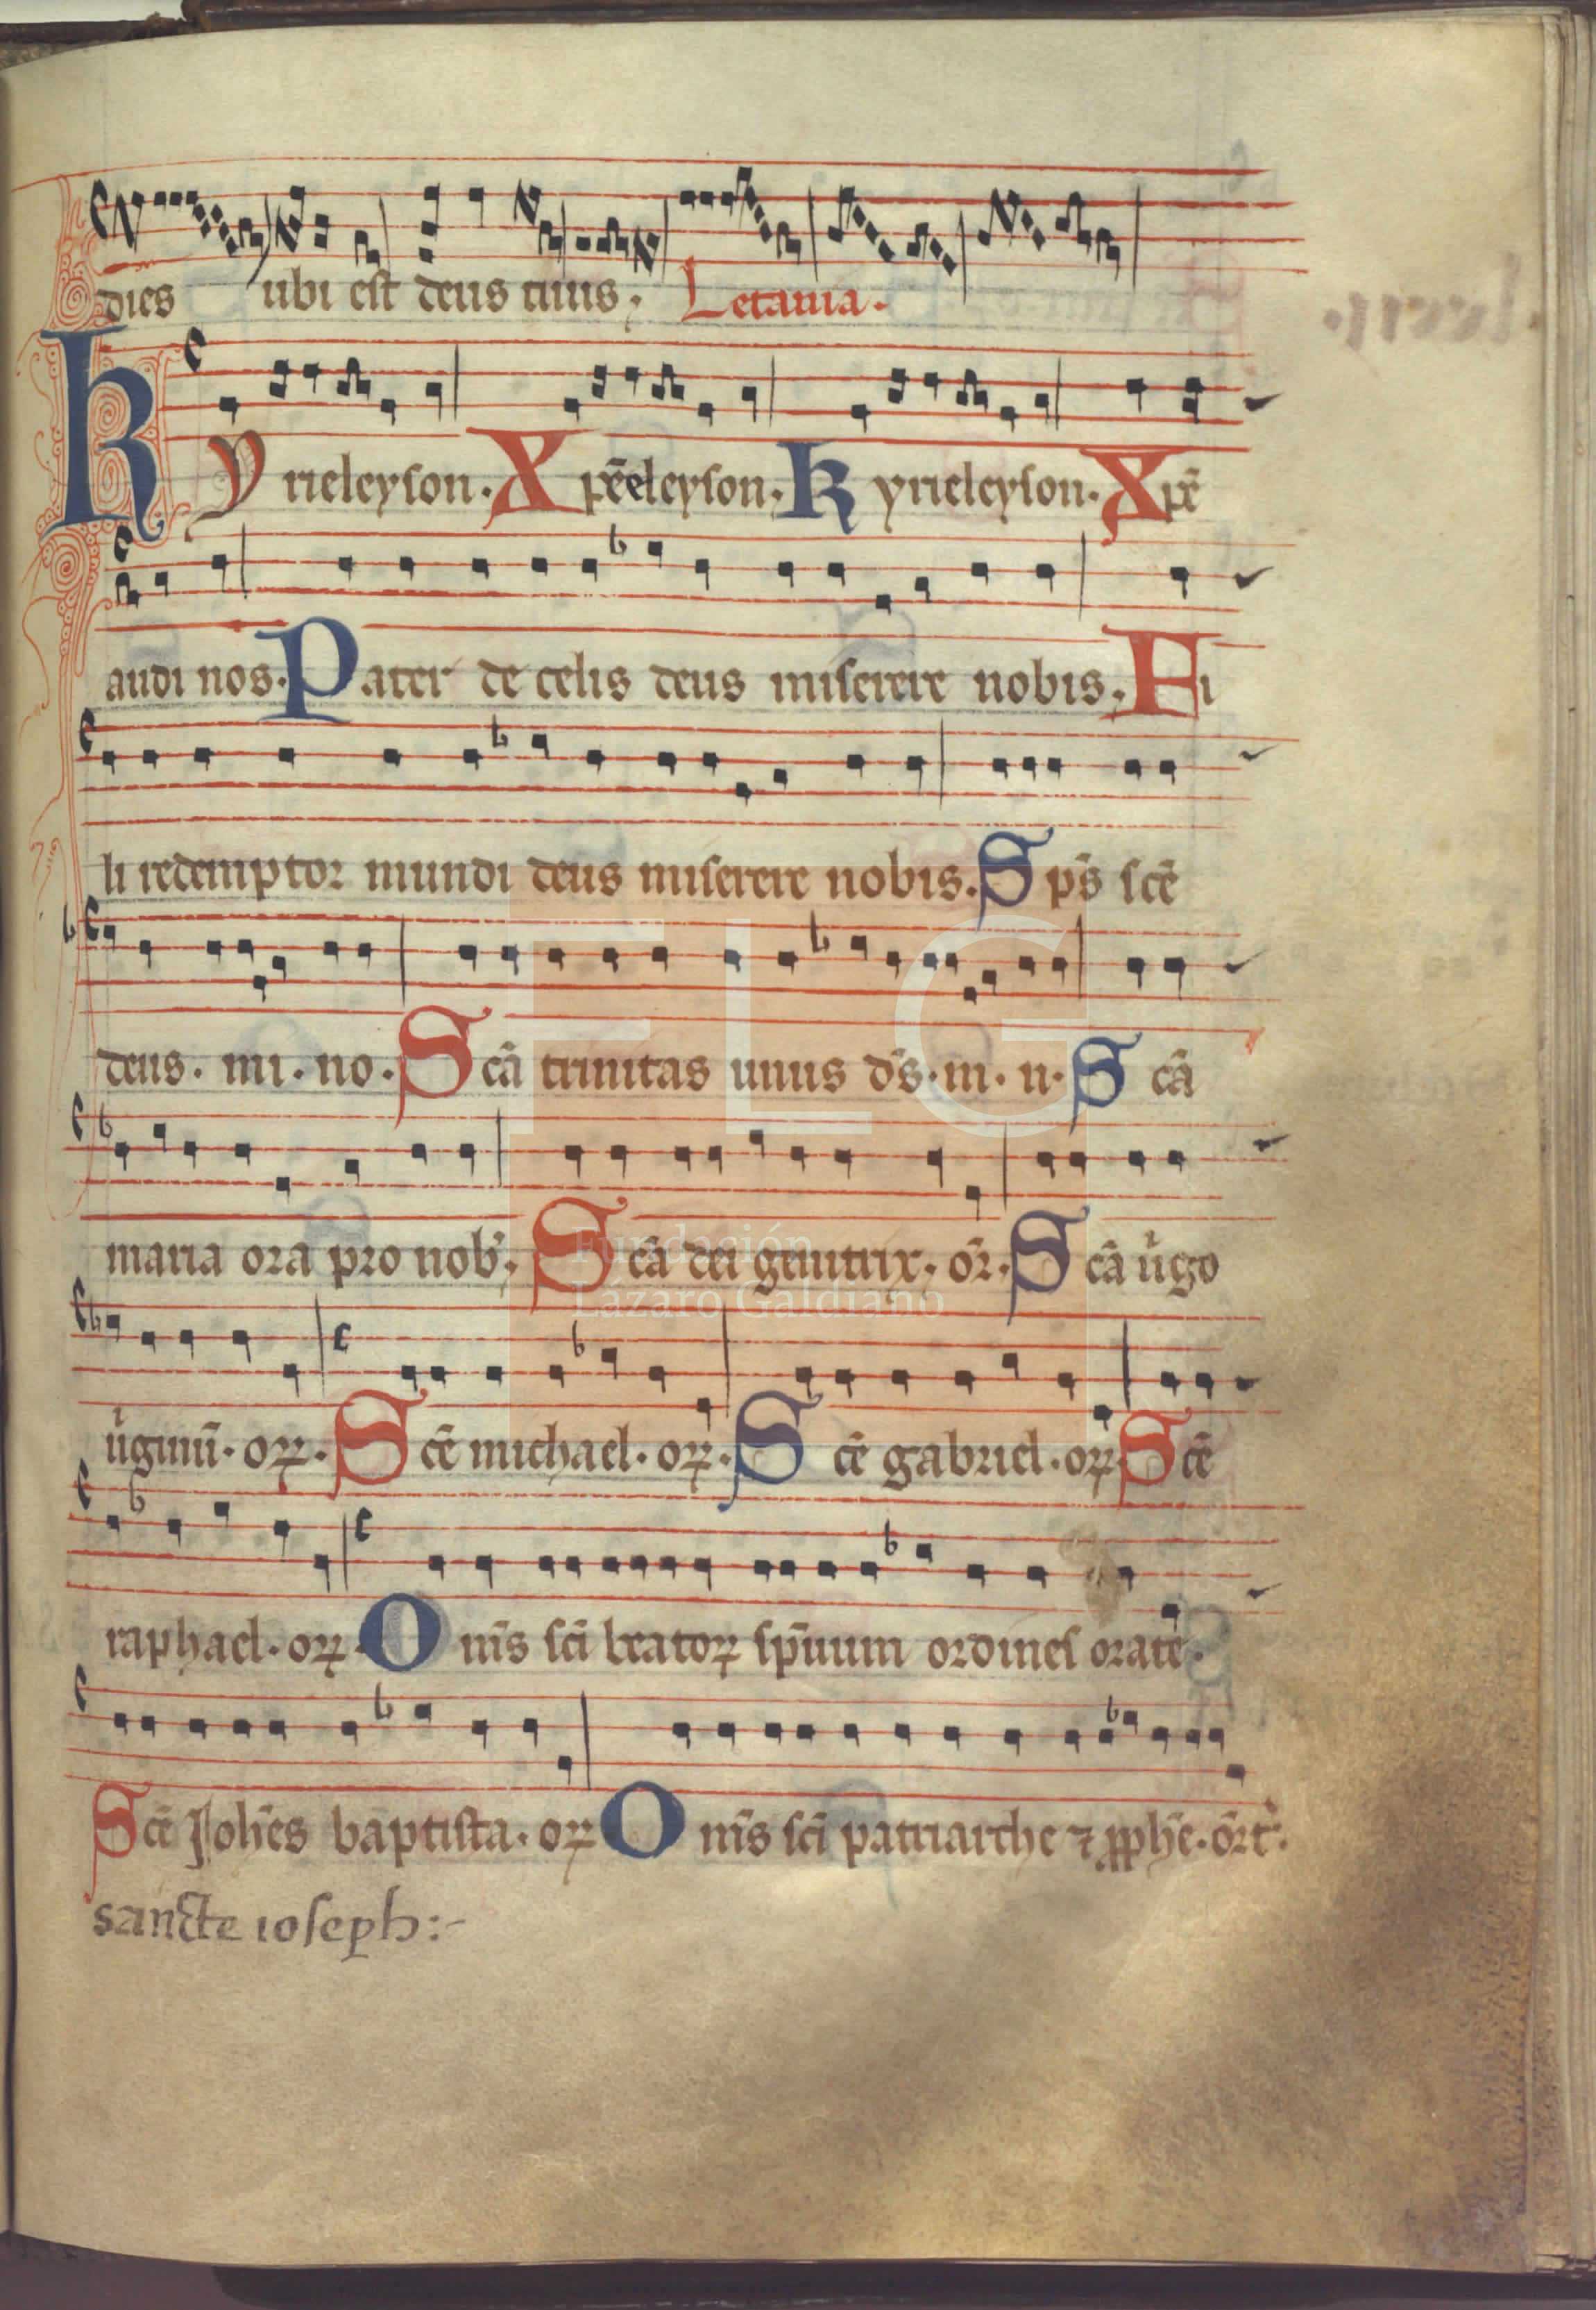 dies ubi est deus tuus. Letania.
Kyrieleyson. Xpēeleyson. Kyrieleyson. Xpē
audi nos. Pater de celis deus miserere nobis. Fi
li redemptor mundi deus miserere nobis. Sps̄ scē
deus. mi. no. Scā trinitas unus ds̄. m. n. Scā
maria ora pro nob. Scā dei genitrix. or̄. Scā ùgo
ùginū. oꝝ. Scē michael. oꝝ. Scē gabriel. oꝝ. Scē
raphael. oꝝ. Om̄s sci beatoꝝ sp̄uum ordines orate.
Scē Joh̄es baptista. oꝝ Om̄s sci patriarche ⁊ ꝓph̄e. or̄t.
sancte ioseph:-
FLG
Fundación
Lázaro Galdiano